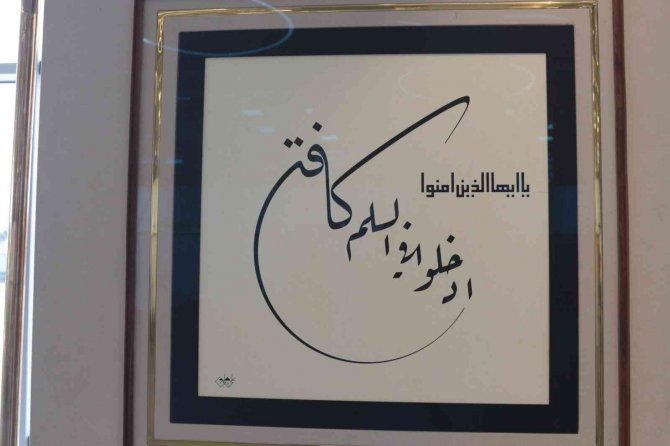 ياايها الذين امنوا
ادخلوا في السلم كافة